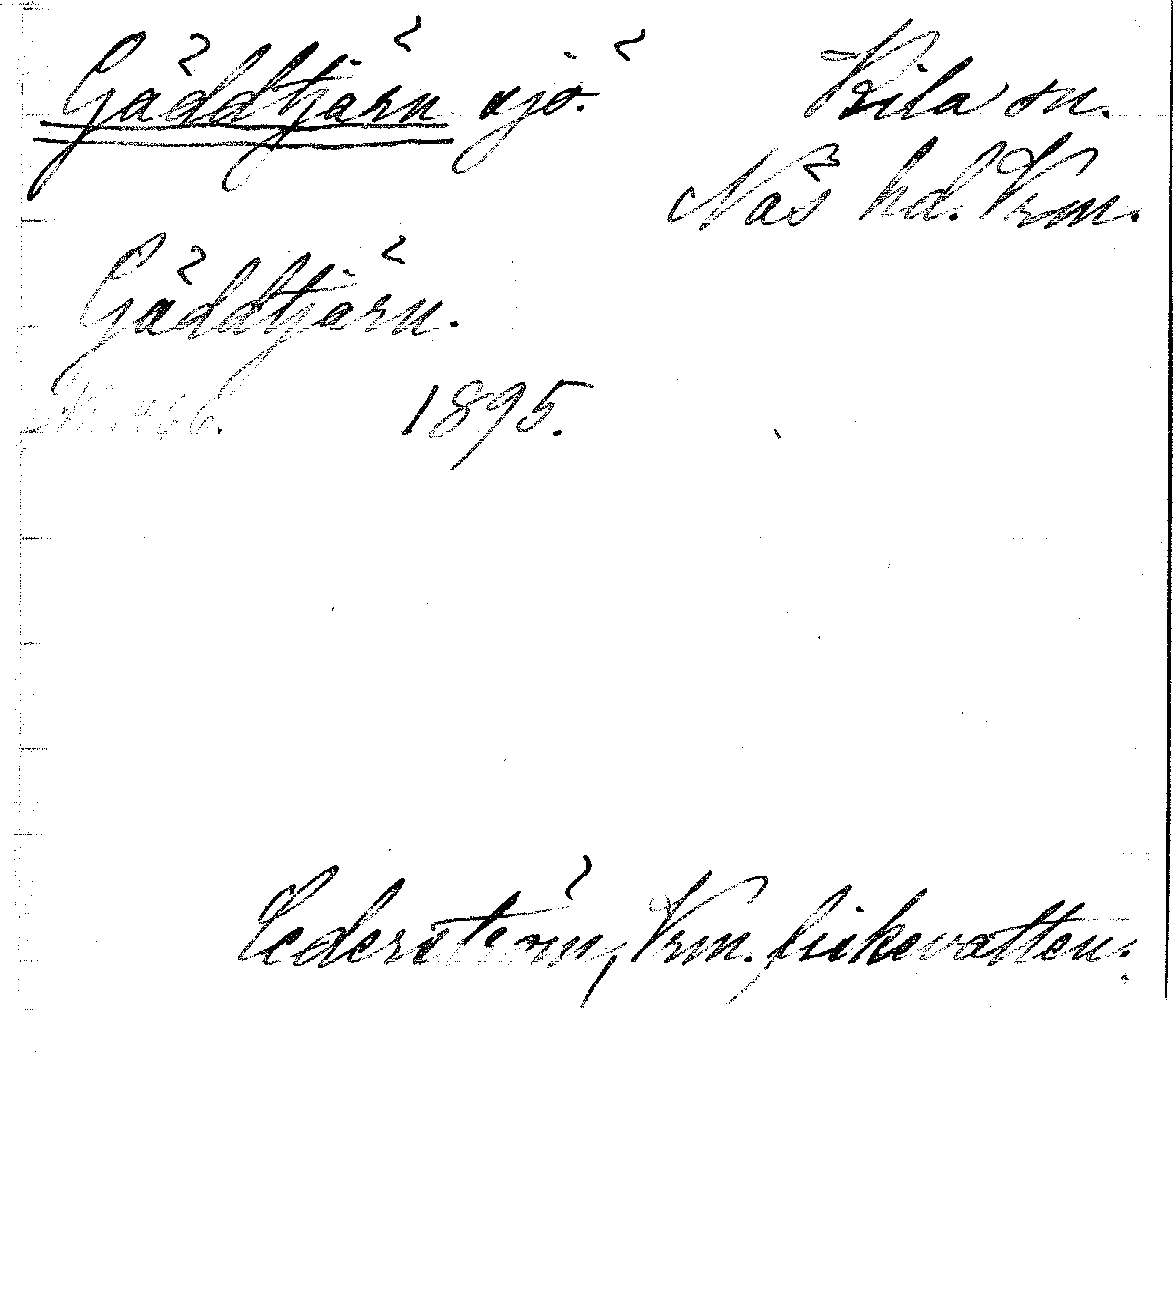 Gäddtjärn sjö. Kila sn.
Näs hd. Vrm.
Gäddtjärn.
1895.
Cederström, Vrm. fiskevatten.